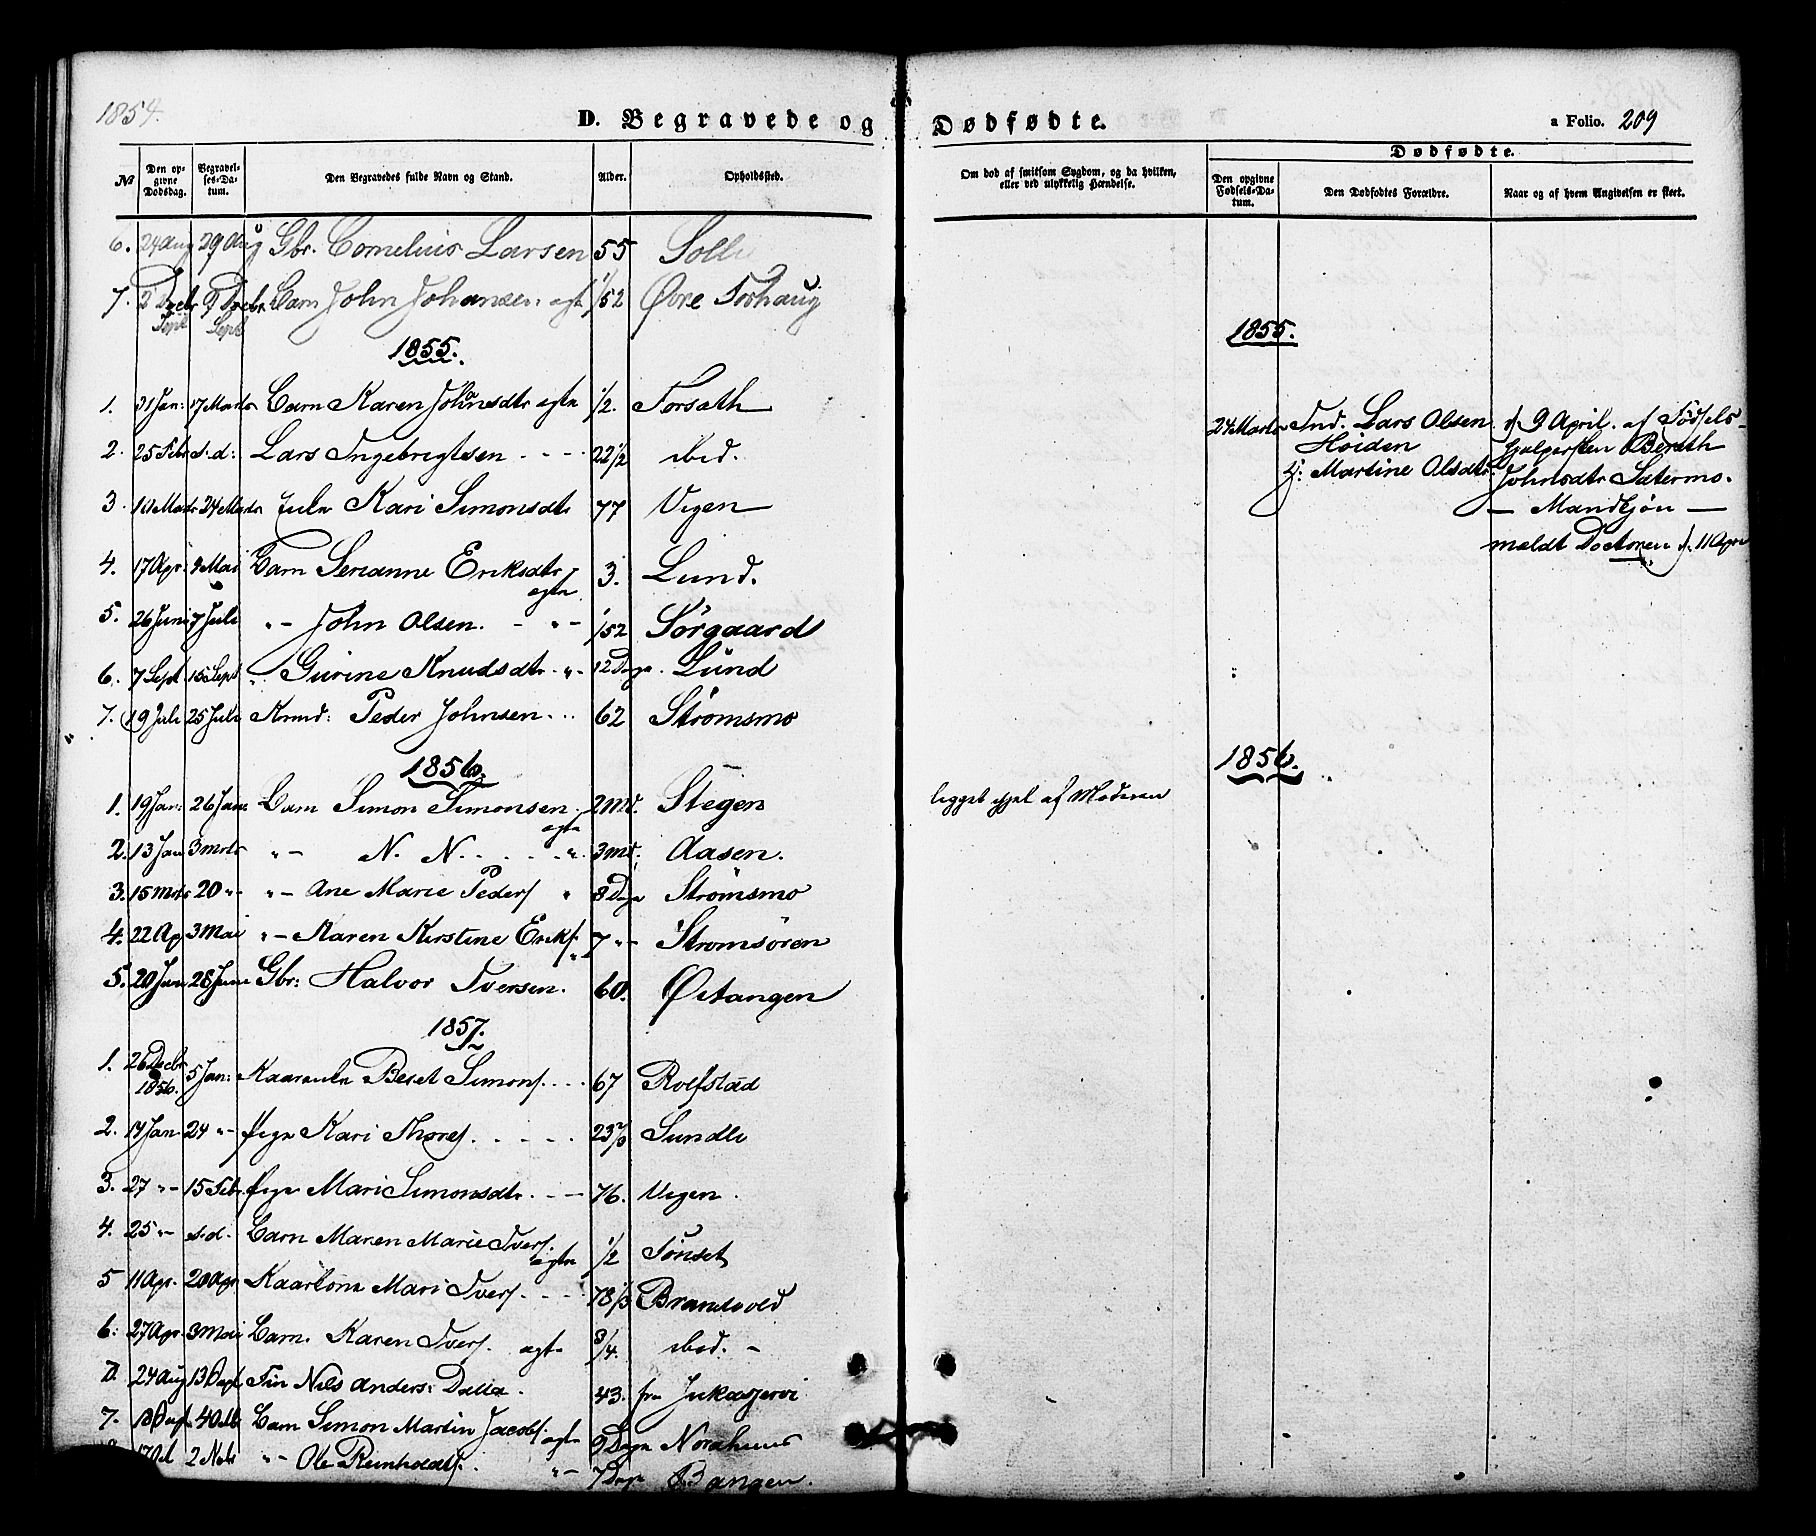 1854.
D. Begravede og Dødfødte.
a Folio. 209
Dødfødte.
No
Den opgivne Dødsdag.
Begravelses-Datum.
Den Begravedes fulde Navn og Stand.
Alder.
Opholdssted.
Om død af smitsom Sygdom, og da hvilken, eller ved ulykkelig Hændelse.
Den opgivne Fødsels-Datum.
Den Dødfødtes Forældre.
Naar og af hvem Angivelsen er skeet.
6. 24 Aug 29 Aug Gbr. Cornelius Larsen 55 Solli
7. 2 Decbr 9 Decbr Barn John Johansen agte 1/52 Øvre Forhaug
Sept Sept
1855.
1. 31 Jan: 17 Marts Barn Karen Johnsdtr agte 1/2. Forsæth
2. 25 Febr s.d: Lars Ingebrigtsen 22 1/2 ibid.
3. 10 Marts 24 Marts Kari Simonsdtr 77 Vegen
4. 17 Apr. 9 Mai Barn Serianne Eriksdtr 3. Lund.
agte
5. 26 Juni 7 Juli "- John Olsen. - "- 1/52 Sørgaard
6. 7 Sept 15 Sept " Gurine Knudsdtr. "- 12 Dage. Lund
7. 19 Juli 25 Juli Kmd: Peder Johnsen 62 Strømsmo
1856.
1. 19 Jan: 26 Jan: Barn Simon Simonsen. 2 Md. Stegen
agte
2. 13 Jan 3 Mrts "- N. N. " 3 Md. Aasen.
3. 15 Mrts 20 "- "- Ane Marie Peders " 8 Dage Strømsmo
4. 22 Ap 3 Mai "- Karen Kirstine Eriks. 7 "- Strømsøren
5. 20 Jun 28 Juni Gbr: Halvor Iversen. 60. Østangen
1857.
1. 26 Decbr 1856. 5 Jan: Beret Simons. 67 Rolfstad
2. 14 Jan 24 "- Pige Kari Thores. 23 Sundli
3. 27 "- 15 Febr. Pige Mari Simonsdtr. 76. Vegen.
4. 25 "- s.d. Barn Maren Marie Ivers. 1/2 Tønset
agte
5 11 Apr. 20 Apr Kaarkone Mari Ivers. 78 1/3 Brandvold
6. 27 Apr. 3 Mai Barn. Karen Ivers. agte 3/4. ibid. -
D. 24 Aug 13 Sept Fin Nils Anders: Dalla. 43. fra Jukasjervi
7. 4 Octb Barn Simon Martin Jacobs. agte 9 Dage Nordhuus
2 Nvbr "- Ole Reinholdts. "- 7 Dage Bangen.
1855.
24 Marts Ind. Lars Olsen
Høiden
H: Martine Olsdtr.
d. 9 April. af Fødsels-
hjelpersken Bereth
Johnsdtr Sætermo.
— Mandkjøn —
meldt Doctoren d. 11 Apr
1856.
ligget ihjel af Moderen